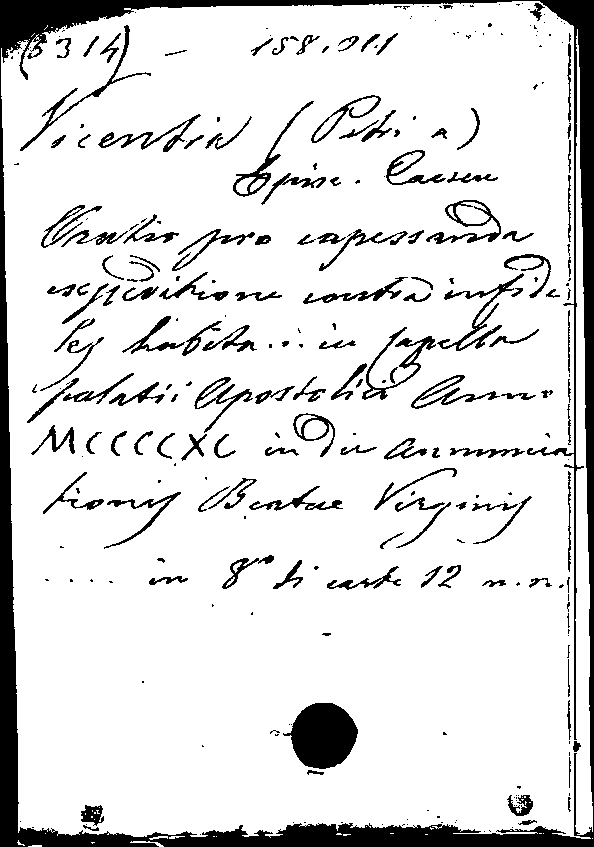 (5314) - 158.011
Vicentia (Petri a)
Episc. Caesen
Oratio pro capessanda
expeditione contra infide
les habita... in capella
palatii Apostolici Anno
MCCCCXC in die Annuncia
tionis Beatae Virginis
.... in 8° di carte 12 n. n.